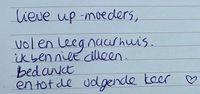 lieve up-moeders,
vol en leeg naar huis.
ik ben niet alleen.
bedankt
en tot de volgende keer ♡